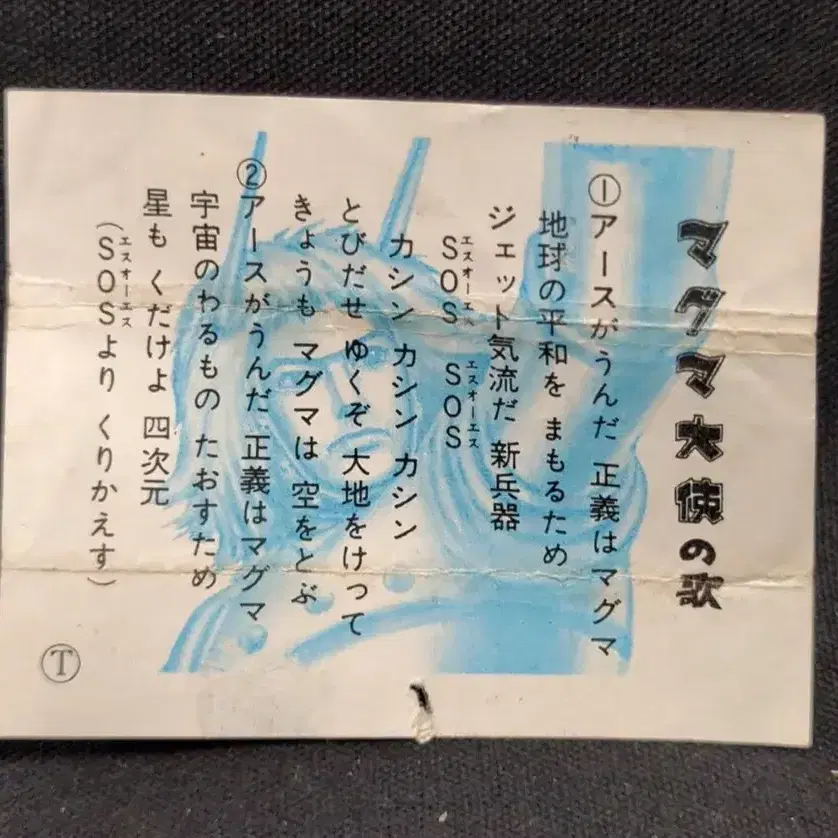 マグマ大使の歌
①アースがうんだ 正義はマグマ
地球の平和を まもるため
ジェット気流だ 新兵器
エスオーエス エスオーエス
SOS SOS
カシン カシン カシン
とびだせ ゆくぞ 大地をけって
きょうも マグマは 空をとぶ
②アースがうんだ 正義はマグマ
宇宙のわるもの たおすため
星も くだけよ 四次元
エスオーエス
(SOSより くりかえす)
Ⓣ